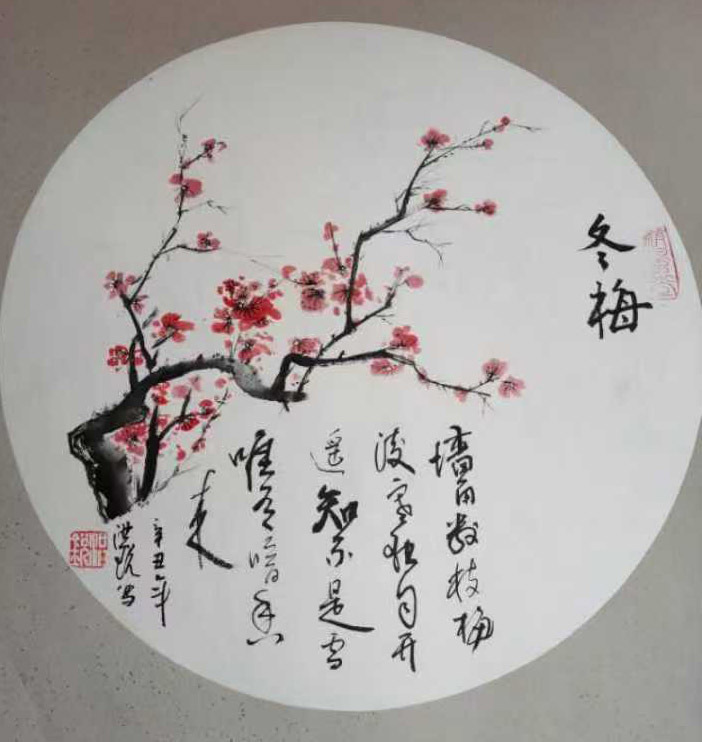 冬梅
墙角数枝梅
凌寒独自开
遥知不是雪
唯有暗香
来
辛丑年
洪写